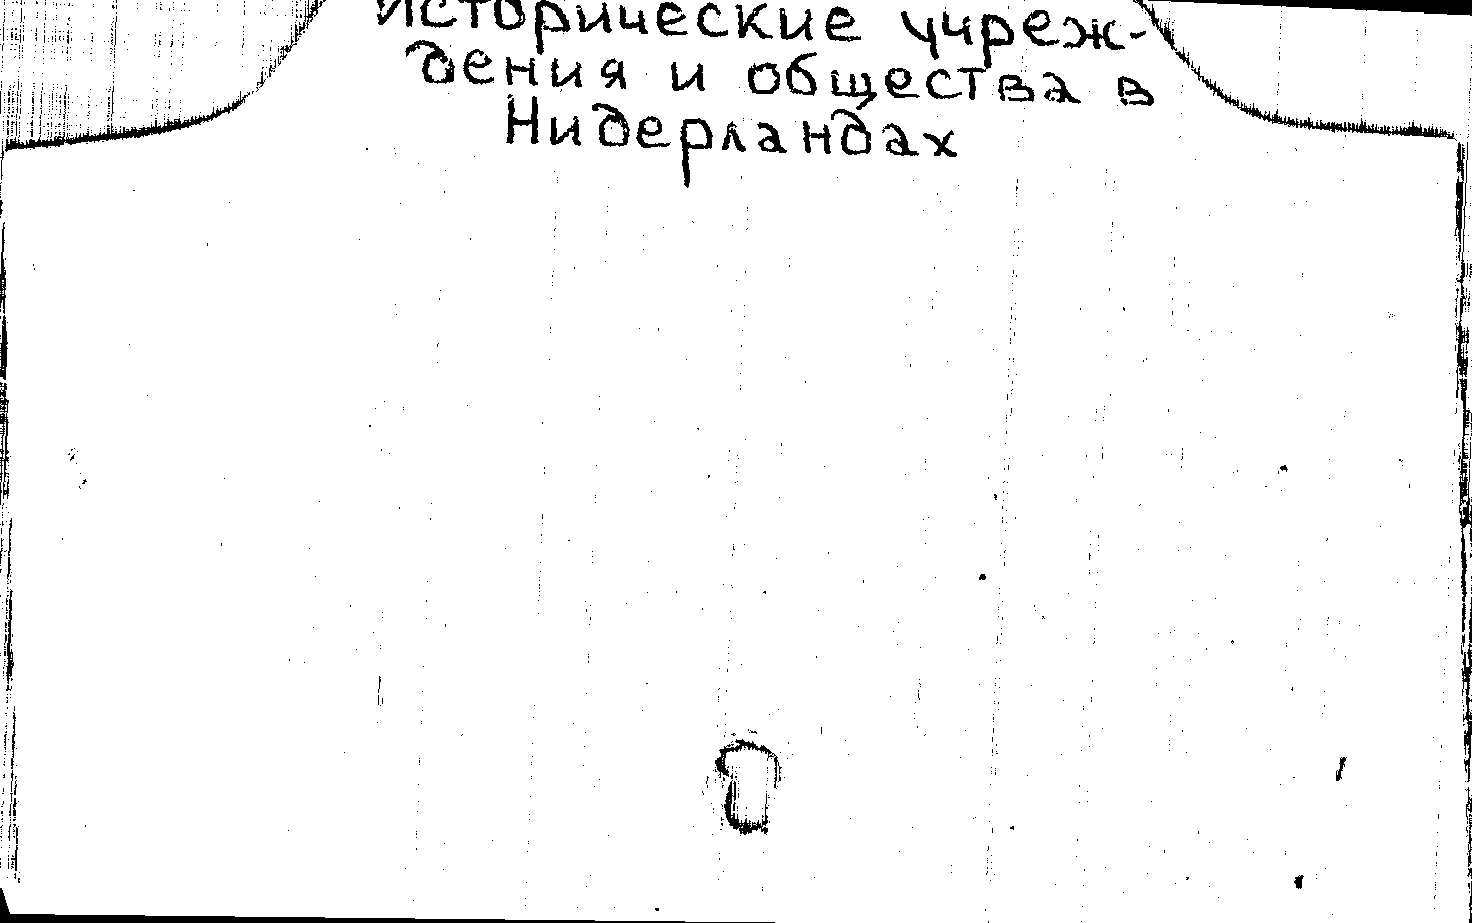 Исторические учреж-
дения и общества в
Нидерландах